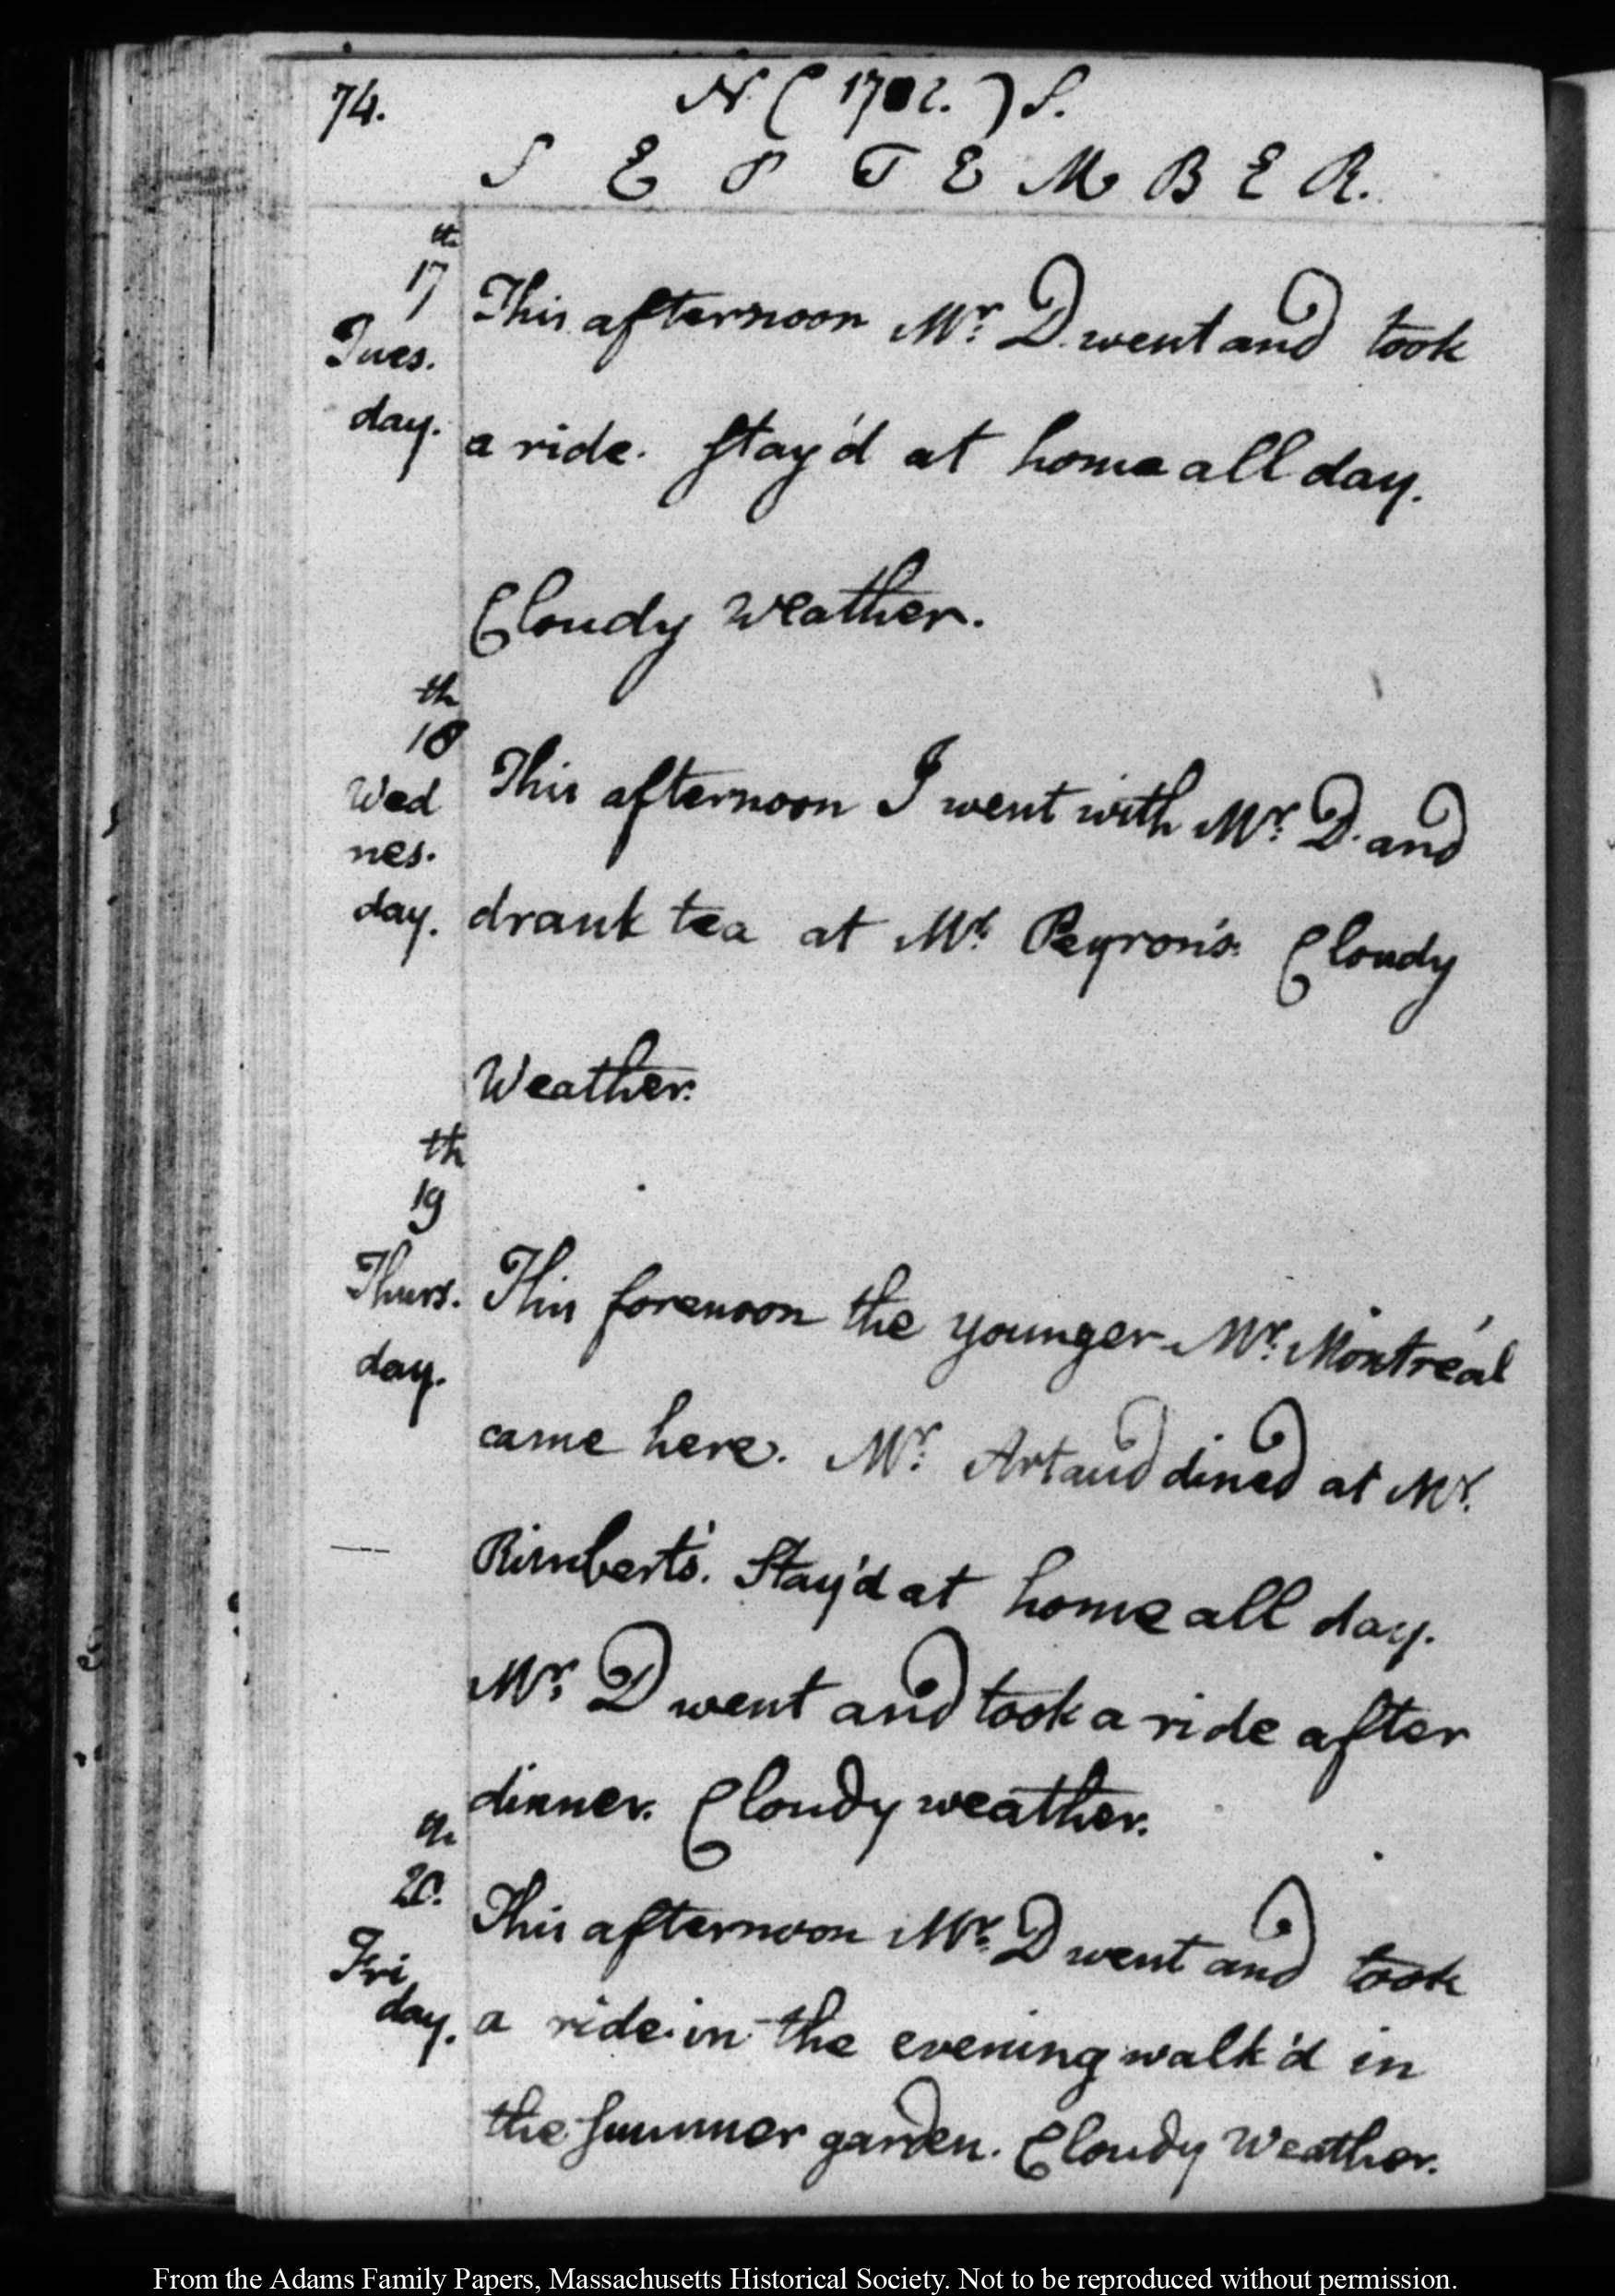 74.
N. ( 1782. ) S.
S E P T E M B E R.
th
17
Tues.
day.
This afternoon Mr. D. went and took
a ride. Stay'd at home all day.
Cloudy weather.
th
18
Wed
nes.
day.
This afternoon I went with Mr. D. and
drank tea at Mr. Peyron's. Cloudy
Weather.
th
19
Thurs.
day.
This forenoon the younger Mr. Montréal
came here. Mr. Artaud dined at Mr.
Rimbert's. Stay'd at home all day.
Mr. D went and took a ride after
dinner. Cloudy weather.
th
20.
Fri
day.
This afternoon Mr. D went and took
a ride. in the evening walk'd in
the Summer garden. Cloudy Weather.
From the Adams Family Papers, Massachusetts Historical Society. Not to be reproduced without permission.